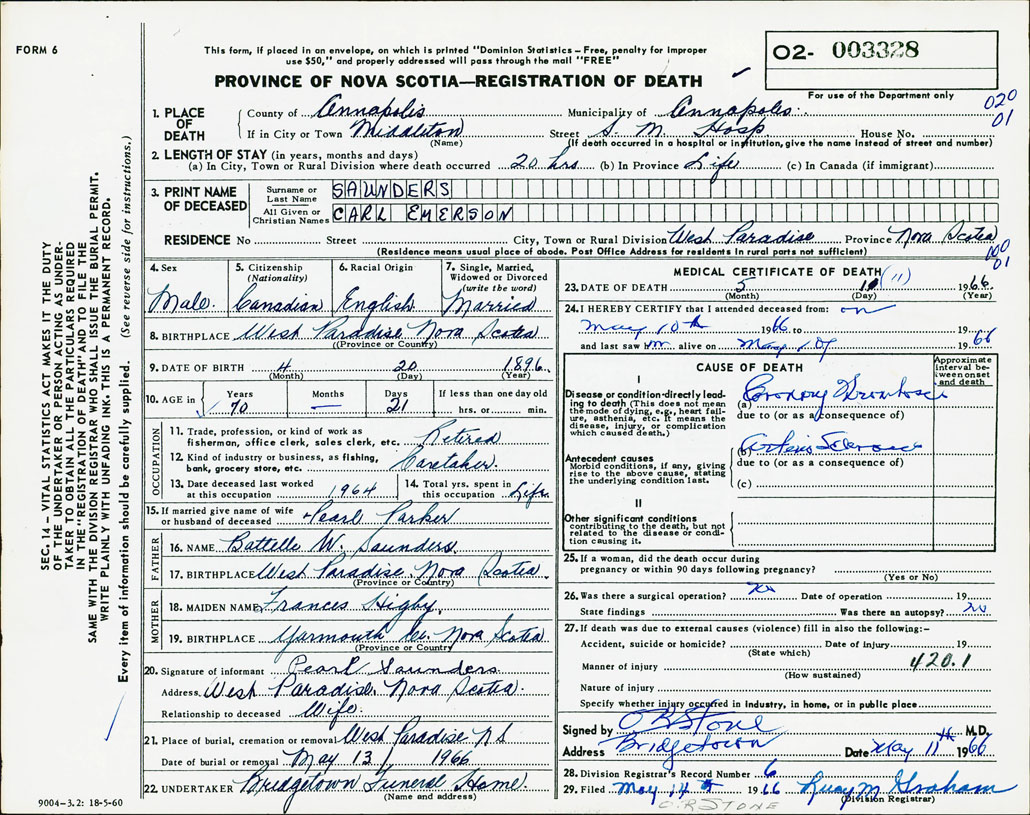 FORM 6
This form, if placed in an envelope, on which is printed "Dominion Statistics – Free, penalty for improper
use $50," and properly addressed will pass through the mail "FREE"
PROVINCE OF NOVA SCOTIA—REGISTRATION OF DEATH
02- 003328
For use of the Department only
020
01
1. PLACE OF DEATH
County of Annapolis Municipality of Annapolis
If in City or Town Middleton Street S. M. Hosp House No.
(Name) (If death occurred in a hospital or institution, give the name instead of street and number)
2. LENGTH OF STAY (in years, months and days)
(a) In City, Town or Rural Division where death occurred 20 hrs (b) In Province Life (c) In Canada (if immigrant)
3. PRINT NAME OF DECEASED
Surname or Last Name SAUNDERS
All Given or Christian Names CARL EMERSON
RESIDENCE No Street City, Town or Rural Division West Paradise Province Nova Scotia
(Residence means usual place of abode. Post Office Address for residents in rural parts not sufficient)
01
4. Sex 5. Citizenship 6. Racial Origin 7. Single, Married,
(Nationality) Widowed or Divorced
(write the word)
Male Canadian English Married
8. BIRTHPLACE West Paradise Nova Scotia
(Province or Country)
9. DATE OF BIRTH 4 20 1896
(Month) (Day) (Year)
10. AGE in Years Months Days If less than one day old
70 — 21 hrs. or min.
OCCUPATION
11. Trade, profession, or kind of work as
fisherman, office clerk, sales clerk, etc. Retired
12. Kind of industry or business, as fishing,
bank, grocery store, etc. Caretaker.
13. Date deceased last worked at this occupation 1964
14. Total yrs. spent in this occupation Life
15. If married give name of wife
or husband of deceased Pearl Parker
FATHER
16. NAME Battelle W. Saunders.
17. BIRTHPLACE West Paradise, Nova Scotia
(Province or Country)
MOTHER
18. MAIDEN NAME Frances Higby.
19. BIRTHPLACE Yarmouth Co. Nova Scotia
(Province or Country)
20. Signature of informant Pearl Saunders
Address West Paradise, Nova Scotia.
Relationship to deceased Wife.
21. Place of burial, cremation or removal West Paradise N S
Date of burial or removal May 13 1966
22. UNDERTAKER Bridgetown Funeral Home.
(Name and address)
MEDICAL CERTIFICATE OF DEATH
23. DATE OF DEATH 5 (11) 1966
(Month) (Day) (Year)
24. I HEREBY CERTIFY that I attended deceased from: on
May 10th 1966 to 19
and last saw him alive on May 10th 1966
CAUSE OF DEATH
Approximate interval between onset and death
I
Disease or condition directly leading to death (This does not mean the mode of dying, e.g., heart failure, asthenia, etc. It means the disease, injury, or complication which caused death.)
(a) Coronary Thrombosis
due to (or as a consequence of)
Antecedent causes
Morbid conditions, if any, giving rise to the above cause, stating the underlying condition last.
(b) Arterio Sclerosis
due to (or as a consequence of)
(c)
II
Other significant conditions
contributing to the death, but not related to the disease or condition causing it.
25. If a woman, did the death occur during
pregnancy or within 90 days following pregnancy?
(Yes or No)
26. Was there a surgical operation? no Date of operation 19
State findings Was there an autopsy? no
27. If death was due to external causes (violence) fill in also the following:–
Accident, suicide or homicide? Date of injury 19
(State which)
420.1
Manner of injury
(How sustained)
Nature of injury
Specify whether injury occurred in Industry, in home, or in public place
Signed by O R Stone M.D.
Address Bridgetown Date May 11th 1966
28. Division Registrar's Record Number 6
29. Filed May 14th 1966 M. Graham
(Division Registrar)
O.R STONE
9004–3.2: 18-5-60
SEC. 14 – VITAL STATISTICS ACT MAKES IT THE DUTY
OF THE UNDERTAKER OR PERSON ACTING AS UNDER-
TAKER TO OBTAIN ALL THE PARTICULARS REQUIRED
IN THE "REGISTRATION OF DEATH" AND TO FILE THE
SAME WITH THE DIVISION REGISTRAR WHO SHALL ISSUE THE BURIAL PERMIT.
WRITE PLAINLY WITH UNFADING INK. THIS IS A PERMANENT RECORD.
Every item of information should be carefully supplied. (See reverse side for instructions.)